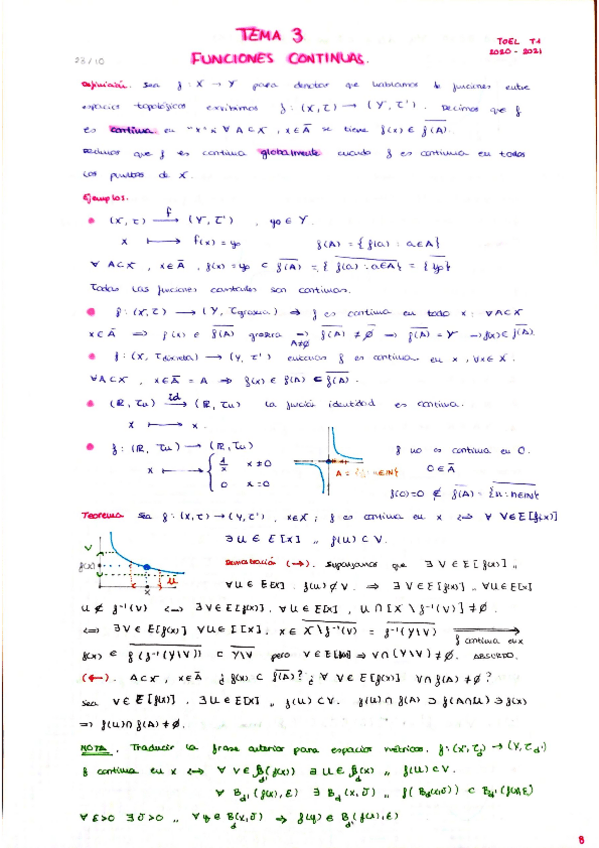 TEMA 3
FUNCIONES CONTINUAS.
TOEL T1
2020 - 2021
28/10
Definición. Sea f: X → Y para denotar que hablamos de funciones entre
espacios topológicos escribimos f: (X,τ) → (Y,τ'). Decimos que f
es continua en "x" si ∀ A⊂X, x∈Ā se tiene f(x) ∈ \overline{f(A)}.
Decimos que f es continua globalmente cuando f es continua en todos
los puntos de X.
Ejemplos.
• (X,τ) \xrightarrow{f} (Y,τ'), y₀ ∈ Y.
x ⟼ f(x) = y₀ f(A) = {f(a) : a∈A}
∀ A⊂X, x∈Ā, f(x) = y₀ ⊂ \overline{f(A)} = \overline{{f(a) : a∈A}} = \overline{{y₀}}
Todas las funciones constantes son continuas.
• f: (X,τ) → (Y, τ_{grosera}) ⇒ f es continua en todo x : ∀A⊂X
x∈Ā ⇒ f(x) ∈ \overline{f(A)} grosera ⇒_{A≠∅} \overline{f(A)} ≠ ∅ ⇒ \overline{f(A)} = Y ⇒ f(x) ∈ \overline{f(A)}.
• f: (X, τ_{discreta}) → (Y,τ') entonces f es continua en x, ∀x∈X.
∀A⊂X, x∈Ā = A ⇒ f(x) ∈ f(A) ⊂ \overline{f(A)}.
• (ℝ,τu) \xrightarrow{id} (ℝ,τu) La función identidad es continua.
x ⟼ x.
• f: (ℝ,τu) → (ℝ,τu)
x ⟼ { 1/x x≠0
0 x=0
A = {1/n : n∈ℕ}
f no es continua en 0.
0 ∈ Ā
f(0)=0 ∉ \overline{f(A)} = \overline{{n : n∈ℕ}}
Teorema Sea f: (X,τ) → (Y,τ'), x∈X ; f es continua en x ⟺ ∀ V∈E[f(x)]
∃ U ∈ E[x] ,, f(U) ⊂ V.
V
f(x)
x
U
Demostración (→). Supongamos que ∃ V∈E[f(x)] ,,
∀U∈E[x] f(U) ⊄ V. ⇒ ∃ V∈E[f(x)] ,, ∀U∈E[x]
U ⊄ f⁻¹(V) ⟺ ∃V∈E[f(x)], ∀U∈E[x], U ∩ [X \ f⁻¹(V)] ≠ ∅.
⟺ ∃ V∈E[f(x)] ∀U∈E[x], x ∈ \overline{X \ f⁻¹(V)} = \overline{f⁻¹(Y\V)} ⇒ f continua en x
f(x) ∈ \overline{f(f⁻¹(Y\V))} ⊂ \overline{Y\V} pero V∈E[f(x)] ⇒ V∩(Y\V) ≠ ∅. ABSURDO.
(←). A⊂X, x∈Ā ¿f(x) ⊂ \overline{f(A)}? ¿∀ V∈E[f(x)] V∩f(A) ≠ ∅?
Sea V∈E[f(x)], ∃U∈E[x] ,, f(U) ⊂ V. f(U)∩f(A) ⊃ f(A∩U) ∋ f(x)
⇒ f(U)∩f(A) ≠ ∅.
NOTA. Traducir la frase anterior para espacios métricos. f: (X,τd) → (Y,τd')
f continua en x ⟺ ∀ V∈B_{d'}(f(x)) ∃ U∈B_d(x) ,, f(U) ⊂ V.
∀ B_{d'}(f(x),ε) ∃ B_d(x,δ) ,, f(B_d(x,δ)) ⊂ B_{d'}(f(x),ε)
∀ ε>0 ∃ δ>0 ,, ∀ y ∈ B_d(x,δ) ⇒ f(y) ∈ B_{d'}(f(x),ε)
8